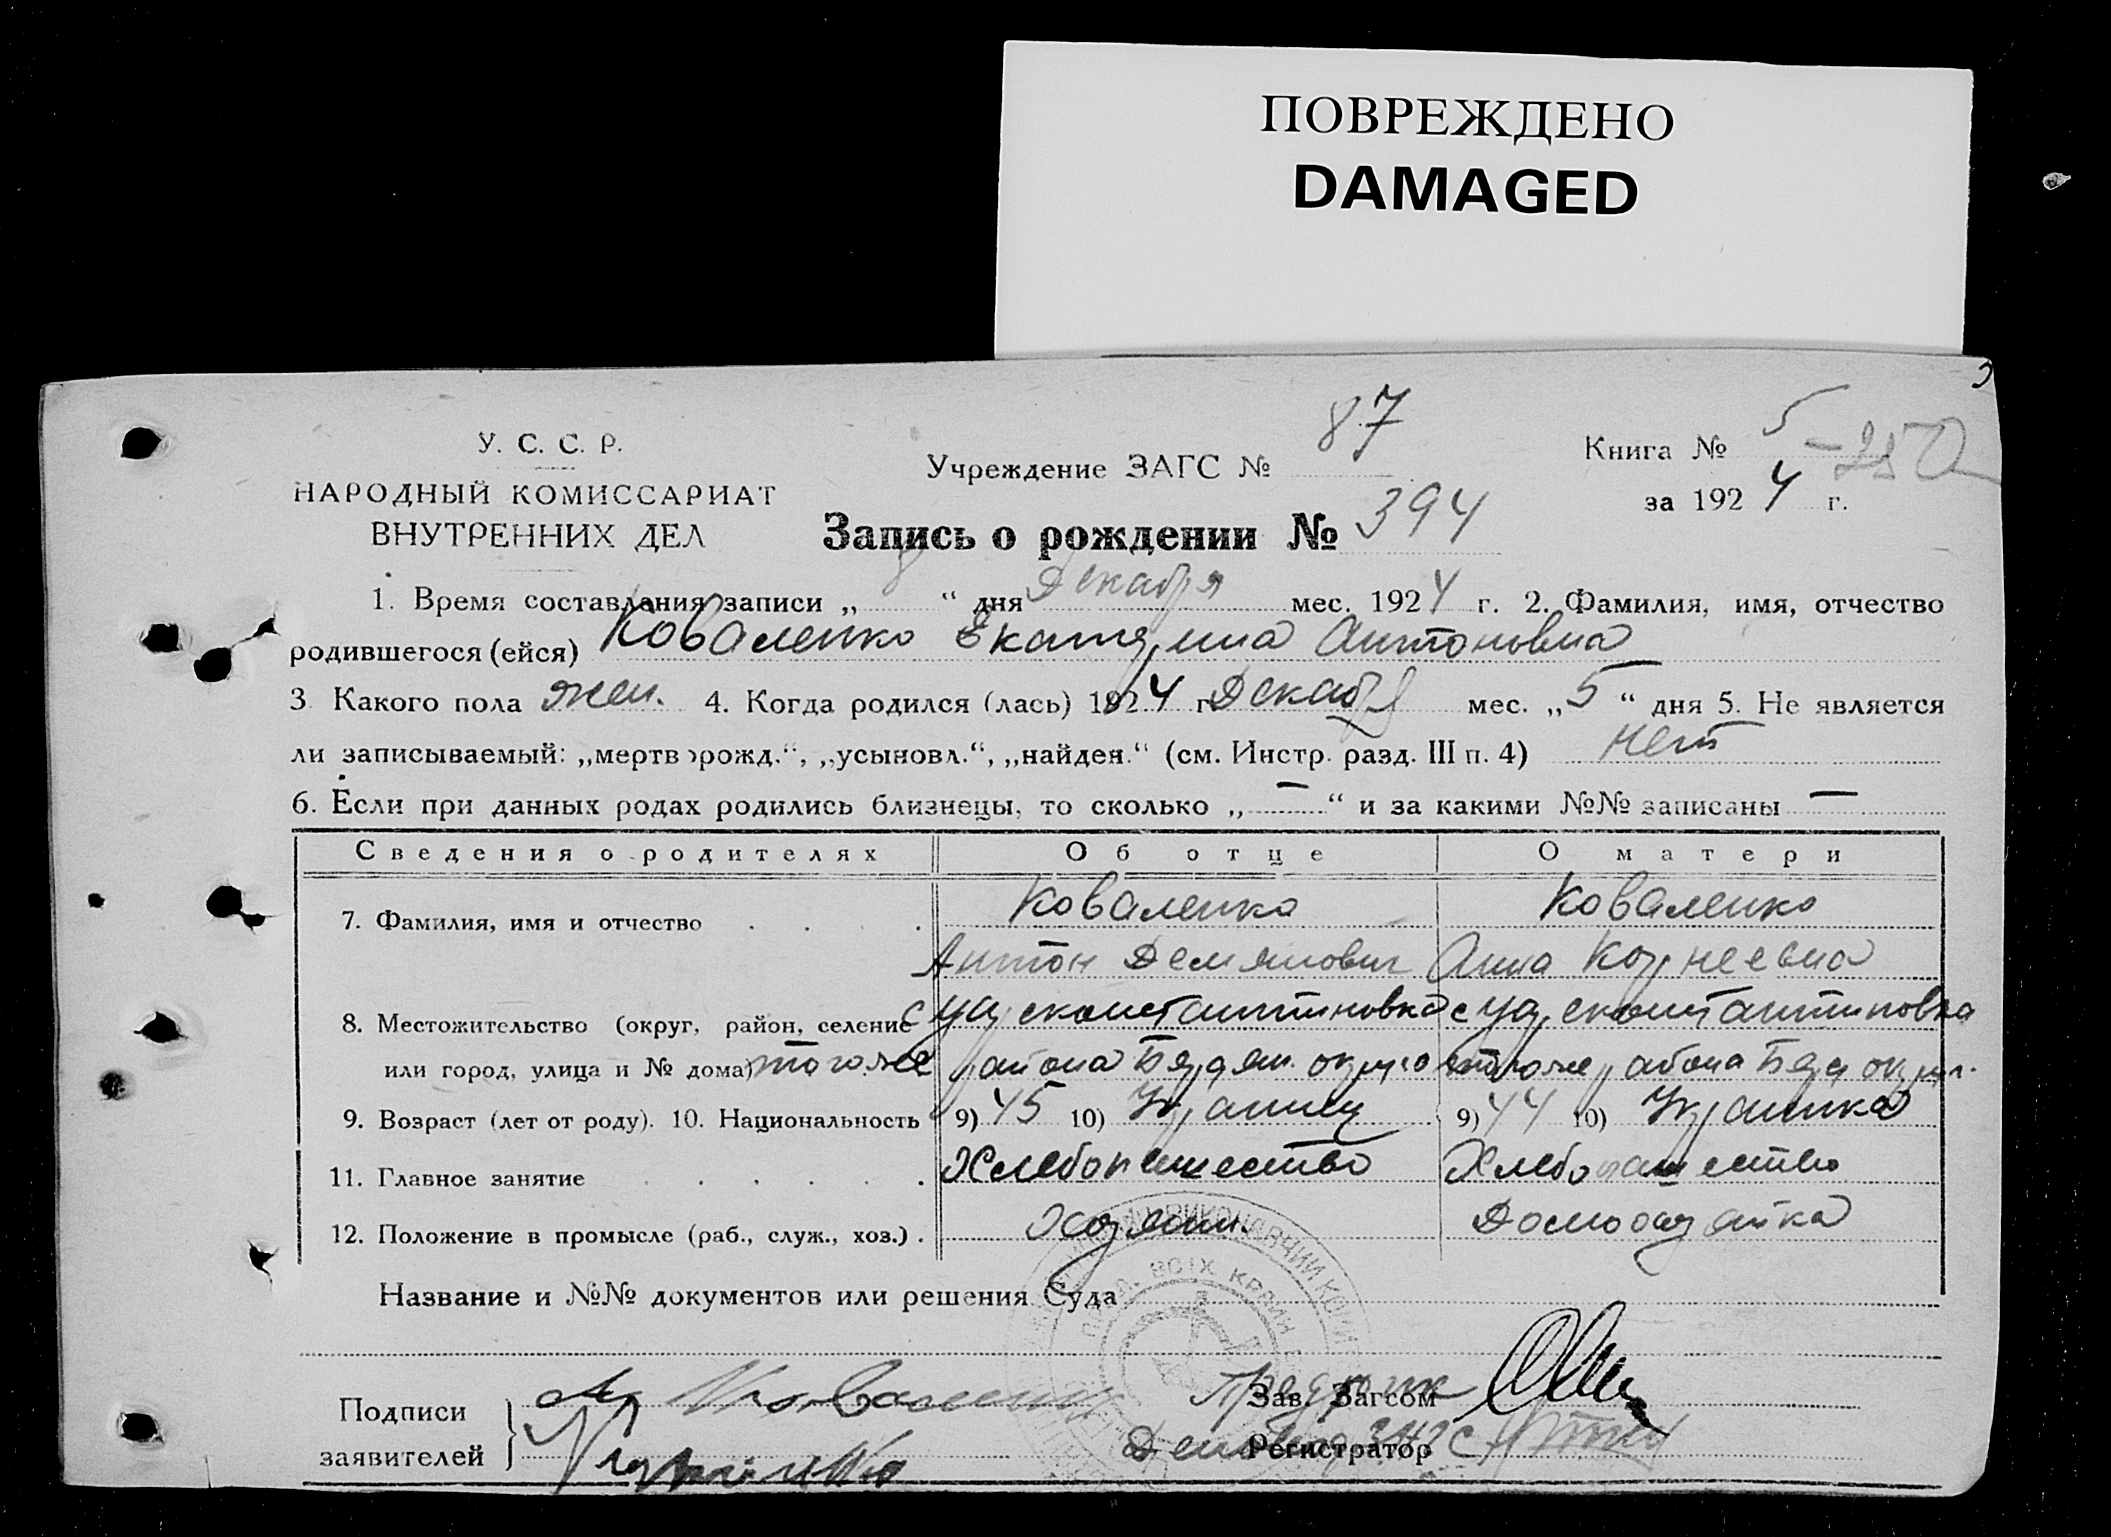 ПОВРЕЖДЕНО
DAMAGED
У. С. С. Р.
НАРОДНЫЙ КОМИССАРИАТ
ВНУТРЕННИХ ДЕЛ
Учреждение ЗАГС № 87
Книга № 5 - 250
за 1924 г.
Запись о рождении № 394
1. Время составления записи „ 8 “ дня Декабря мес. 1924 г. 2. Фамилия, имя, отчество
родившегося (ейся) Коваленко Екатерина Антоновна
3 Какого пола жен. 4. Когда родился (лась) 1924 г. Декабря мес. „ 5 “ дня 5. Не является
ли записываемый: „мертворожд.“, „усыновл.“, „найден.“ (см. Инстр. разд. III п. 4) нет
6. Если при данных родах родились близнецы, то сколько „ — “ и за какими №№ записаны —
Сведения о родителях Об отце О матери
7. Фамилия, имя и отчество Коваленко Коваленко
Антон Демянович Анна Корнеевна
8. Местожительство (округ, район, селение с Царсконстантиновка с Царсконстантиновка
или город, улица и № дома) тогоже района Бердян. округа тогоже района Берд округ.
9. Возраст (лет от роду). 10. Национальность 9) 45 10) Украинец 9) 44 10) Украинка
11. Главное занятие Хлебопашество Хлебопашество
12. Положение в промысле (раб., служ., хоз.) Хозяин. Домохозяйка
Название и №№ документов или решения Суда
Подписи
заявителей
А Коваленко
Зав. Загсом
Регистратор
ВИКОНАВЧИЙ
ВСІХ КРАЇН